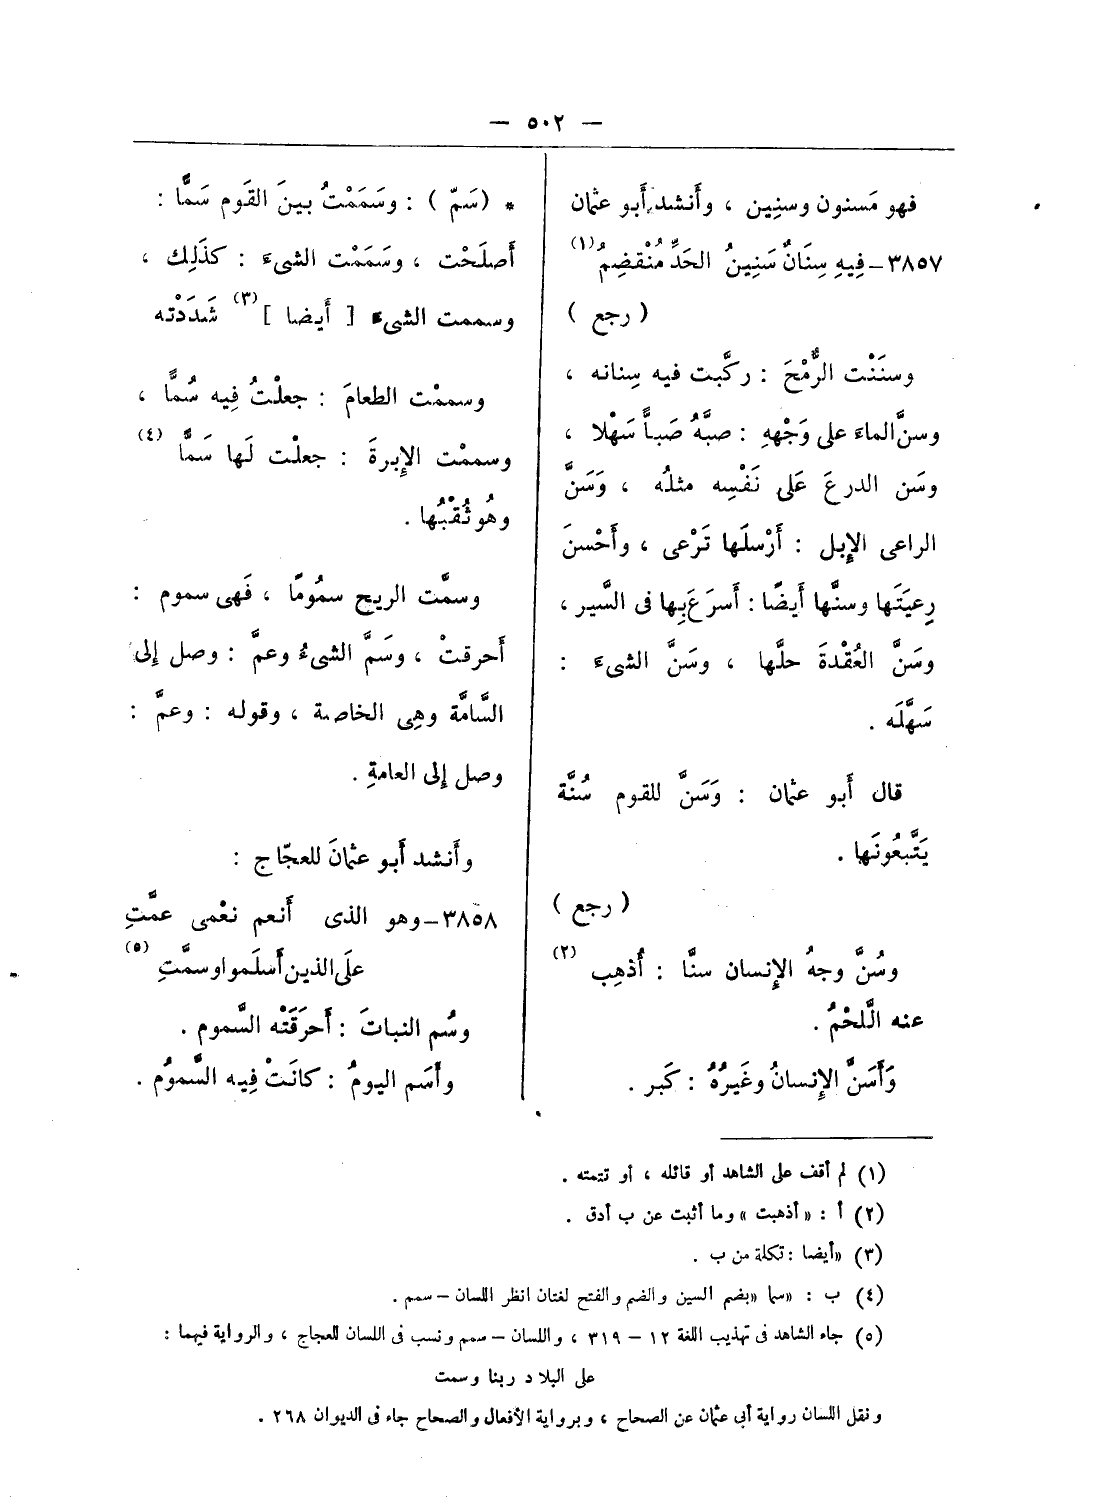 — ٥٠٢ —
فهو مَسنون وسنِين ، وأَنشد أَبو عثمان
٣٨٥٧ــ فِيهِ سِنَانٌ سَنِينُ الحَدِّ مُنْقَضِمُ (١)
( رجع )
وسنَنْت الرُّمْحَ : ركَّبت فيه سِنانه ،
وسنَّ الماءَ على وَجْههِ : صبَّهُ صَبـاًّ سَهْلا ،
وسَن الدرعَ عَلى نَفْسِه مثلُه ، وَسَنَّ
الراعى الإِبل : أَرْسلَها تَرْعى ، وأَحْسنَ
رِعيَتَها وسنَّها أَيضًا : أَسرَعَ بِها فى السَّير ،
وسَنَّ العُقْدةَ حلَّها ، وسَنَّ الشىءَ :
سَهَّلَه .
قال أَبو عثمان : وَسَنَّ للقوم سُنَّة
يَتَّبعُونَها .
( رجع )
وسُنَّ وجهُ الإِنسان سنًّا : أُذهِب (٢)
عنه الَّلحْمُ .
وَأَسَنَّ الإِنسانُ وغَيرُهُ : كَبر .
* ( سَمّ ) : وسَمَمْتُ بينَ القَوم سَمًّا :
أَصلَحْت ، وسَمَمْت الشىءَ : كذَلِك ،
وسممت الشىء [ أَيضا ] (٣) شَدَدْته
وسممْت الطعامَ : جعلْتُ فِيه سُمًّا ،
وسممْت الإِبرةَ : جعلْت لَها سَمًّا (٤)
وهُو ثُقْبُها .
وسمَّت الريح سمُومًا ، فَهى سموم :
أَحرقتْ ، وسَمَّ الشىءُ وعمَّ : وصل إِلى
السَّامَّة وهِى الخاصة ، وقوله : وعمَّ :
وصل إِلى العامةِ .
وأَنشد أَبو عثمانَ للعجّاج :
٣٨٥٨ــ وهو الذى أَنعم نعْمى عمَّتِ
علَى الذين أَسلَموا وسمَّتِ (٥)
وسُم النباتَ : أَحرَقَتْه السَّموم .
وأَسَم اليومُ : كانَتْ فِيه السَّمومُ .
(١) لم أقف على الشاهد أو قائله ، أو تتمته .
(٢) أ : « أذهبت » وما أثبت عن ب أدق .
(٣) «أيضا : تكلة من ب .
(٤) ب : «سما «بضم السين والضم والفتح لغتان انظر اللسان – سمم .
(٥) جاء الشاهد فى تهذيب اللغة ١٢ – ٣١٩ ، واللسان – سمم ونسب فى اللسان للعجاج ، والرواية فيهما :
على البلاد ربنا وسمت
ونقل اللسان رواية أبى عثمان عن الصحاح ، وبرواية الأفعال والصحاح جاء فى الديوان ٢٦٨ .